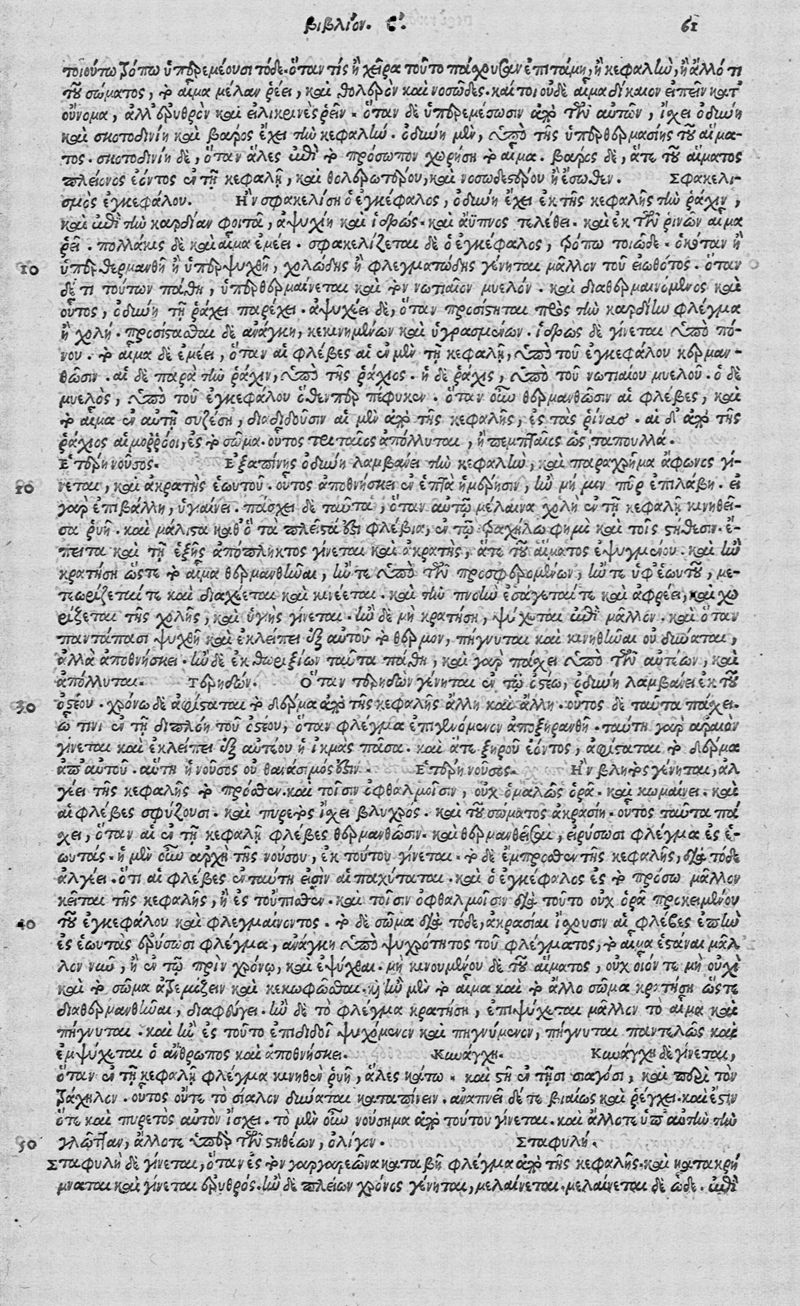 βιβλίον. β. 61
τοιούτῳ τρόπῳ ὑπερεμέουσι τόδε. ὅταν τίς ἢ χεῖρα τοῦτο πάσχουσαν ἐπιτάμῃ, ἢ κεφαλὴν, ἢ ἄλλό τι
τοῦ σώματος, τὸ αἷμα μέλαν ῥέει, καὶ θολερὸν καὶ νοσῶδες. καί τοι οὐδὲ αἷμα δίκαιον εἰπεῖν κατ'
οὔνομα, ἀλλ' ἐρυθρὸν καὶ εἰλικρινὲς ῥεῖν. ὅταν δὲ ὑπερεμέσωσιν ἀπὸ τῶν αὐτῶν, ἴσχει ὀδύνη
καὶ σκοτοδινίη καὶ βάρος ἔχει τὴν κεφαλήν. ὀδύνη μὲν, ὑπὸ τῆς ὑπερθερμασίης τοῦ αἵμα-
τος. σκοτοδινίη δὲ, ὅταν ἁλὲς ἐπὶ τὸ πρόσωπον χωρήσῃ τὸ αἷμα. βάρος δὲ, ἅτε τοῦ αἵματος
πλείονος ἐόντος ἐν τῇ κεφαλῇ, καὶ θολερωτέρου, καὶ νοσωδεστέρου ἢ ἔσωθεν. Σφακελι-
σμὸς ἐγκεφάλου. Ἢν σφακελίσῃ ὁ ἐγκέφαλος, ὀδύνη ἔχει ἐκ τῆς κεφαλῆς τὴν ῥάχιν,
καὶ ἐπὶ τὴν καρδίαν φοιτᾷ, ἀψυχίη καὶ ἱδρώς. καὶ ἄϋπνος τελέθει. καὶ ἐκ τῶν ῥινῶν αἷμα
ῥεῖ. πολλάκις δὲ καὶ αἷμα ἐμέει. σφακελίζεται δὲ ὁ ἐγκέφαλος, τρόπῳ τοιῷδε. ὁκόταν ἢ
10 ὑπερθερμανθῇ ἢ ὑπερψυχθῇ, χολώδης ἢ φλεγματώδης γένηται μᾶλλον τοῦ εἰωθότος. ὅταν
δέ τι τούτων πάθῃ, ὑπερθερμαίνεται καὶ τὸν νωτιαῖον μυελόν. καὶ διαθερμαινόμενος καὶ
οὗτος, ὀδύνη τῇ ῥάχει παρέχει. ἀψυχέει δὲ, ὅταν προσίστηται πρὸς τὴν καρδίην φλέγμα
ἢ χολή. προσίστασθαι δὲ ἀνάγκη, κεκινημένων καὶ ὑγρασμένων. ἱδρὼς δὲ γίνεται ὑπὸ πό-
νου. τὸ αἷμα δὲ ἐμέει, ὅταν αἱ φλέβες αἱ ἐν μὲν τῇ κεφαλῇ, ὑπὸ τοῦ ἐγκεφάλου θερμαν-
θῶσιν. αἱ δὲ παρὰ τὴν ῥάχιν, ὑπὸ τῆς ῥάχιος. ἡ δὲ ῥάχις, ὑπὸ τοῦ νωτιαίου μυελοῦ. ὁ δὲ
μυελὸς, ὑπὸ τοῦ ἐγκεφάλου ὅθενπερ πέφυκεν. ὅταν οὖν θερμανθῶσιν αἱ φλέβες, καὶ
τὸ αἷμα ἐν αὐτῇ συζέσῃ, διαδιδοῦσιν αἱ μὲν ἀπὸ τῆς κεφαλῆς, ἐς τὰς ῥῖνας. αἱ δ' ἀπὸ τῆς
ῥάχιος αἱμορρόοι, ἐς τὸ σῶμα. οὗτος τριταῖος ἀπόλλυται, ἢ πεμπταῖος ὡς ταπουλλά.
Ἑτέρη νοῦσος. Ἐξαπίνης ὀδύνη λαμβάνει τὴν κεφαλὴν, καὶ παραχρῆμα ἄφωνος γί-
20 νεται, καὶ ἀκρατὴς ἑωυτοῦ. οὗτος ἀποθνήσκει ἐν ἑπτὰ ἡμέρῃσιν, ἢν μή μιν πῦρ ἐπιλάβῃ. εἰ
γὰρ ἐπιβάλλῃ, ὑγιαίνει. πάσχει δὲ ταῦτα, ὅταν αὐτῷ μέλαινα χολὴ ἐν τῇ κεφαλῇ κινηθεῖ-
σα ῥυῇ. καὶ μάλιστα καθ' ὃ τὰ πλεῖστά ἐστι φλέβια, ἐν τῷ τραχήλῳ φημὶ καὶ τοῖς στήθεσιν. ἔ-
πειτα καὶ τῇ ἑξῆς ἀπόπληκτος γίνεται καὶ ἀκρατὴς, ἅτε τοῦ αἵματος ἐψυγμένου. καὶ ἢν
κρατήσῃ ὥστε τὸ αἷμα θερμανθῆναι, ἤν τε ὑπὸ τῶν προσφερομένων, ἤν τε ὑφ' ἑωυτοῦ, με-
τεωρίζεταί τε καὶ διαχέεται καὶ κινέεται. καὶ τὴν πνοὴν ἐσάγεταί τε καὶ ἀφρέει, καὶ χω
ρίζεται τῆς χολῆς, καὶ ὑγιὴς γίνεται. ἢν δὲ μὴ κρατήσῃ, ψύχεται ἐπὶ μᾶλλον. καὶ ὅταν
παντάπασι ψυχθῇ καὶ ἐκλείπει ἐξ αὐτοῦ τὸ θερμὸν, πήγνυται καὶ κινηθῆναι οὐ δύναται,
ἀλλὰ ἀποθνήσκει. ἢν δὲ ἐκ θωρηξίων ταῦτα πάθῃ, καὶ γὰρ πάσχει ὑπὸ τῶν αὐτέων, καὶ
ἀπόλλυται. Τερηδών. Ὅταν τερηδὼν γένηται ἐν τῷ ὀστέῳ, ὀδύνη λαμβάνει ἐκ τοῦ
30 ὀστέου. χρόνῳ δὲ ἀφίσταται τὸ δέρμα ἀπὸ τῆς κεφαλῆς ἄλλῃ καὶ ἄλλῃ. οὗτος δὲ ταῦτα πάσχει.
ᾧ τινι ἐν τῇ διπλόῃ τοῦ ὀστέου, ὅταν φλέγμα ἐπιγενόμενον ἀποξηρανθῇ. ταύτῃ γὰρ ἀραιὸν
γίνεται καὶ ἐκλείπει ἐξ αὐτέου ἡ ἰκμὰς πᾶσα. καὶ ἅτε ξηροῦ ἐόντος, ἀφίσταται τὸ δέρμα
ἀπ' αὐτοῦ. αὕτη ἡ νοῦσος οὐ θανάσιμός ἐστιν. Ἑτέρη νοῦσος. Ἢν βλητὸς γένηται, ἀλ
γέει τῆς κεφαλῆς τὸ πρόσθεν. καὶ τοῖσιν ὀφθαλμοῖσιν, οὐχ ὁμαλῶς ὁρᾷ. καὶ κωμαίνει. καὶ
αἱ φλέβες σφύζουσι. καὶ πυρετὸς ἴσχει βληχρός. καὶ τοῦ σώματος ἀκρασίη. οὗτος ταῦτα πά
σχει, ὅταν αἱ ἐν τῇ κεφαλῇ φλέβες θερμανθῶσιν. καὶ θερμανθεῖσαι, εἰρύσωσι φλέγμα ἐς ἑ-
ωυτάς. ἡ μὲν οὖν ἀρχὴ τῆς νούσου, ἐκ τούτου γίνεται. τὸ δὲ ἔμπροσθεν τῆς κεφαλῆς, διὰ τόδε
ἀλγέει. ὅτι αἱ φλέβες ἐν ταύτῃ εἰσὶν αἱ παχύταται. καὶ ὁ ἐγκέφαλος ἐς τὸ πρόσω μᾶλλον
κεῖται τῆς κεφαλῆς, ἢ ἐς τοὔπισθεν. καὶ τοῖσιν ὀφθαλμοῖσιν διὰ τοῦτο οὐχ ὁρᾷ προκειμένου
40 τοῦ ἐγκεφάλου καὶ φλεγμαίνοντος. τὸ δὲ σῶμα διὰ τόδε, ἀκρασίαι ἴσχουσιν αἱ φλέβες ἐπὴν
ἐς ἑωυτὰς ἐρύσωσι φλέγμα, ἀνάγκη ὑπὸ ψυχρότητος τοῦ φλέγματος, τὸ αἷμα ἑστάναι μᾶλ
λον νῦν, ἢ ἐν τῷ πρὶν χρόνῳ, καὶ ἐψῦχθαι. μὴ κινουμένου δὲ τοῦ αἵματος, οὐχ οἷόν τε μὴ οὐχὶ
καὶ τὸ σῶμα ἀτρεμίζειν καὶ κεκωφῶσθαι. κἢν μὲν τὸ αἷμα καὶ τὸ ἄλλο σῶμα κρατήσῃ ὥστε
διαθερμανθῆναι, διαφεύγει. ἢν δὲ τὸ φλέγμα κρατήσῃ, ἐπιψύχεται μᾶλλον τὸ αἷμα καὶ
πήγνυται. καὶ ἢν ἐς τοῦτο ἐπιδιδοῖ ψυχόμενον καὶ πηγνύμενον, πήγνυται παντελῶς καὶ
ἐμψύχεται ὁ ἄνθρωπος καὶ ἀποθνήσκει. Κυνάγχη. Κυνάγχη δὲ γίνεται,
ὅταν ἐν τῇ κεφαλῇ φλέγμα κινηθὲν ῥυῇ, ἁλὲς κάτω. καὶ στῇ ἐν τῇσι σιαγόσι, καὶ περὶ τὸν
τράχηλον. οὗτος οὔτε τὸ σίαλον δύναται καταπίνειν. ἀναπνεῖ δέ τε βιαίως καὶ ῥέγχει. καὶ ἔστιν
ὅτε καὶ πυρετὸς αὐτὸν ἴσχει. τὸ μὲν οὖν νούσημα ἀπὸ τούτου γίνεται. καὶ ἄλλοτε ὑπ' αὐτὴν τὴν
50 γλῶτταν, ἄλλοτε ὑπὲρ τῶν στηθέων, ὀλίγον. Σταφυλή.
Σταφυλὴ δὲ γίνεται, ὅταν ἐς τὸν γαργαρεῶνα καταβῇ φλέγμα ἀπὸ τῆς κεφαλῆς. καὶ κατακρή
μναται καὶ γίνεται ἐρυθρός. ἢν δὲ πλείων χρόνος γένηται, μελαίνεται. μελαίνεται δὲ ὧδε. ἐπὶ